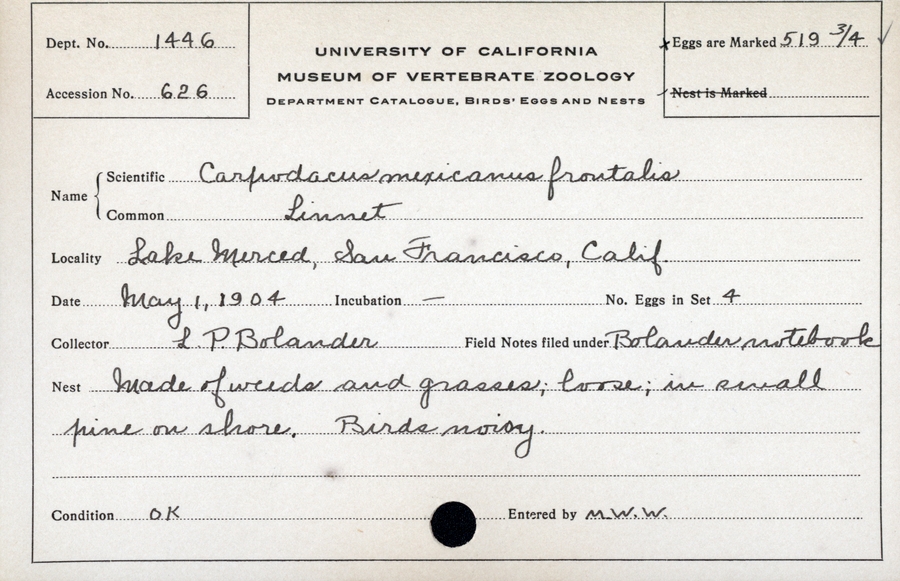 Dept. No. 1446
Accession No. 626
UNIVERSITY OF CALIFORNIA
MUSEUM OF VERTEBRATE ZOOLOGY
DEPARTMENT CATALOGUE, BIRDS' EGGS AND NESTS
x Eggs are Marked 519 3/4 ✓
✓ Nest is Marked
Name { Scientific Carpodacus mexicanus frontalis
Common Linnet
Locality Lake Merced, San Francisco, Calif.
Date May 1, 1904 Incubation — No. Eggs in Set 4
Collector L. P Bolander Field Notes filed under Bolander notebook
Nest Made of weeds and grasses; loose; in small
pine on shore. Birds noisy.
Condition OK Entered by M.W.W.